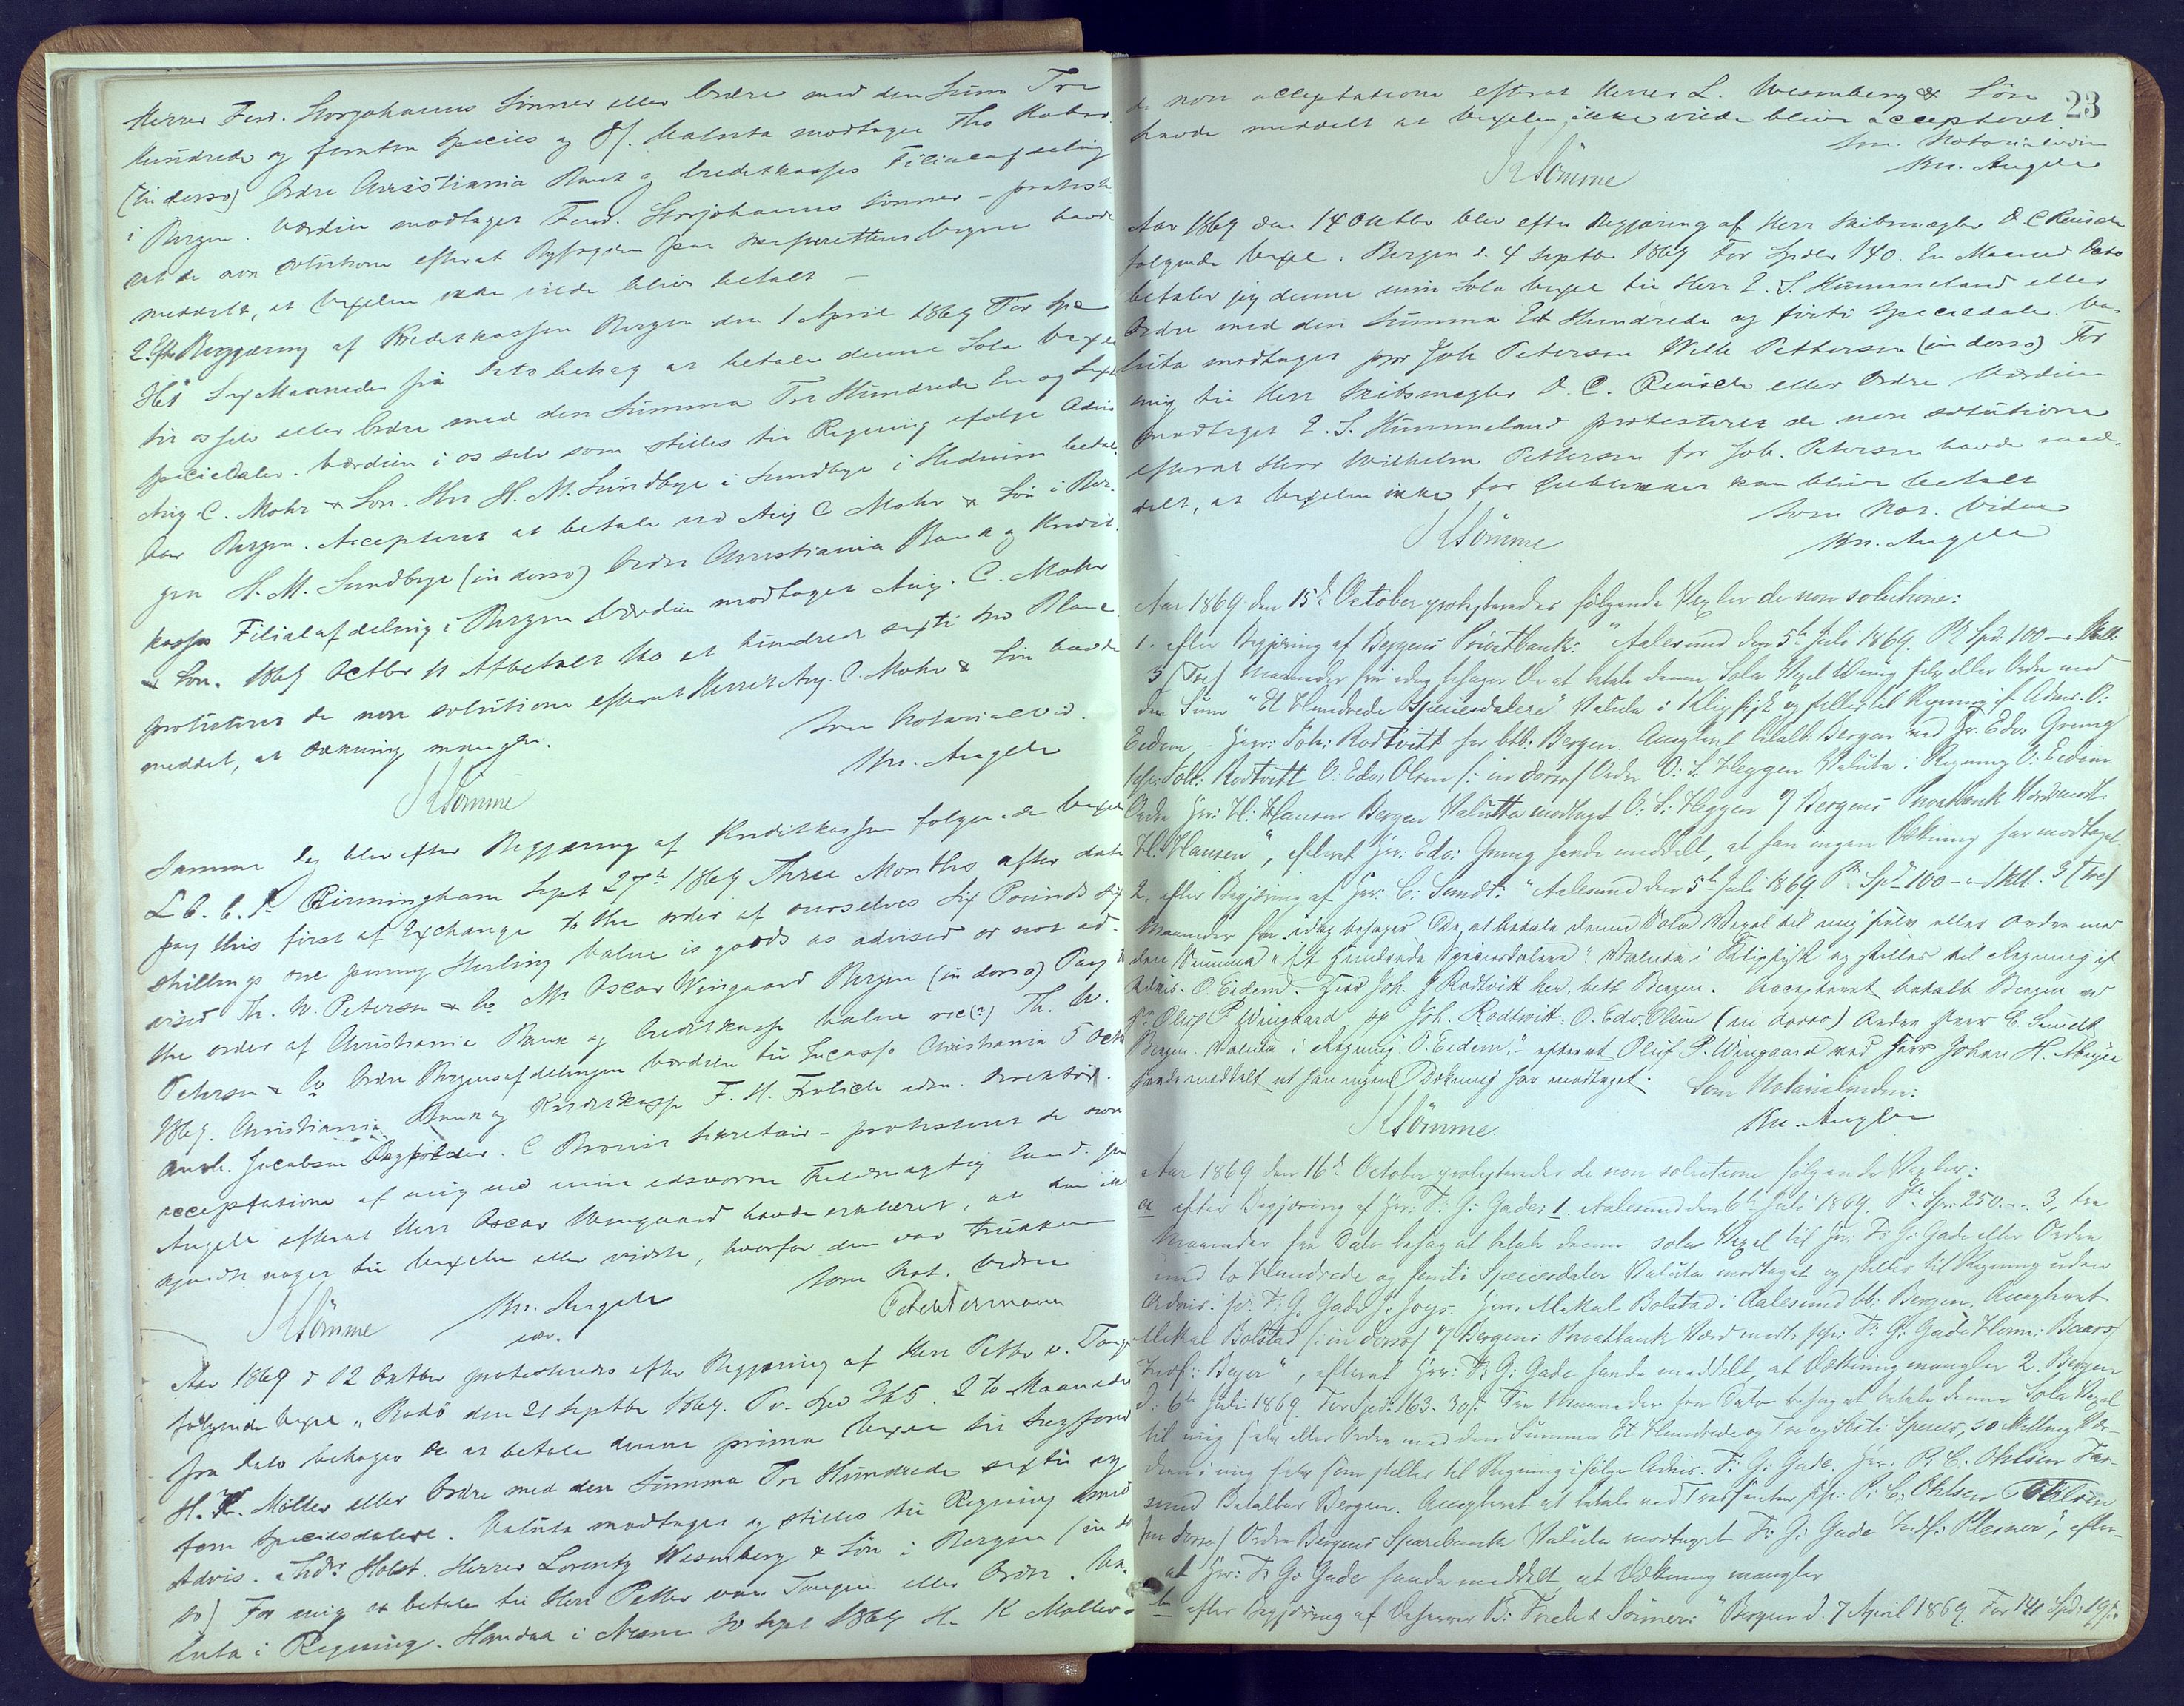 Herrer Ferd. Storjohanns Sønner eller Ordre med den Sum Tre
Hundrede og femten Species og 8 s. Valuta modtaget Ths
(in dorso) Ordre Christiania Bank og Creditkasses Filialafdeling
i Bergen. Værdien modtaget Ferd. Storjohanns Sønner – protest
at de non solutione efterat paa Contoiret havde
meddelt, at Vexelen ikke vilde blive betalt –
2. Efter Begjæring af Kreditkassen Bergen den 1 April 1869 For Spd
361 Sex Maaneder fra Dato behag at betale denne Sola Vexel
til os selv eller Ordre med den Summa Tre Hundrede En og Sexti
Speciedaler. Værdien i os selv som stilles til Regning ifølge Advis
Aug C. Mohr & Søn. Hrr H. M. Sundbye i Sundbye i Hedrum betal-
bar Bergen. Accepteret at betale ved Aug C Mohr & Søn i Ber-
gen H. M. Sundbye (in dorso) Ordre Christiania Bank og Kredit-
kasses Filialafdeling i Bergen Værdien modtaget Aug. C. Mohr
& Søn. 1869 Octbr 11 Afbetalt 160 et hundrede sexti
protesteret de non solutione efterat Herrer Aug. C. Mohr & Søn havde
meddelt, at Dækning mangler.
Som Notarialvid.
Kn. Angell
KSömme
Samme Dag blev efter Begjæring af Kreditkassen følgende Vexel
£ 6. 6. 1 Birmingham Sept 27th 1869 Three Months after date
pay this first of Exchange to the order of ourselves Six Pounds six
shillings one penny Sterling value is goods as advised or not ad-
vised Th. W. Petersen & Co Mr Oscar Wingaard Bergen (in dorso) Pay to
the order of Christiania Bank og Creditkasse value rec(?) Th. W.
Petersen & Co Ordre Bergensafdelingen Værdien til Incasso Christiania 5 Octb
1869. Christiania Bank og Kreditkasse F. H. Frølich adm. Direktör.
Anth. Jacobsen Bogholder. C Secretair – protesteret de non
acceptatione af mig ved min edsvorne Fuldmægtig Cand. jur
Angell efterat Herr Oscar Wingaard havde erklæret, at han ikke
kjendte noget til Vexelen eller vidste, hvorfor den var trukken
Som Not. Vidne
KSömme Kn. Angell
edsv.
Aar 1869 d 12 Oktbr protesteredes efter Begjæring af Herr Petter v. Tangen
følgende Vexel „Bodö den 21 Septbr 1869. Pr. Spd 365. 2 to Maaneder
fra Dato behager De at betale denne prima Vexel til Sigfried
H. K. Möller eller Ordre med den Summa Tre Hundrede sexti og
fem Speciesdaler. Valuta modtaget og stilles til Regning med
Advis. Thdr Holst. Herrer Lorentz Wesenberg & Søn i Bergen (in dor
so) For mig at betale til Herr Petter von Tangen eller Ordre. Va-
luta i Regning. Handaa i Nesne 30 Sept 1869 H. K Møller –
23
de non acceptatione efterat Herrer L. Wesenberg & Søn
havde meddelt at Vexelen ikke vilde blive accepteret.
Som Notarialvidne
KSömme Kn. Angell
Aar 1869 den 14 Oktbr blev efter Begjæring af Herr Skibsmægler D. C Reusch
følgende Vexel. Bergen d. 4 Septbr 1869 For Spdlr 140. En Maaned Dato
betaler jeg denne min Sola Vexel til Herr E. S. Hummeland eller
Ordre med den Summa Et Hundrede og førti Speciedaler. Va-
luta modtaget ppr Joh Petersen Wilh Pettersen (in dorso) For
mig til Herr Skibsmægler D. C. Reusch eller Ordre Værdien
modtaget E. S. Hummeland protesteret de non solutione
efterat Herr Wilhelm Pettersen for Joh. Petersen havde med-
delt, at Vexelen ikke for Øieblikket kan blive betalt
Som Not. Vidne
KSömme Kn. Angell
Aar 1869 den 15de October protesteredes følgende Vexler de non solutione:
1. efter Begjæring af Bergens Privatbank: "Aalesund den 5te Juli 1869. Pr Spd. 100 – Skill.
3 (Tre) Maaneder fra idag behager De at betale denne Sola Vexel til mig selv eller Ordre med
den Sum "Et Hundrede Speciesdalere" Valuta i Klipfisk og stilles til Regning if Advis. O:
Eidem. – Herr: Joh: Rodtvitt her btb. Bergen. Accepteret betalb: Bergen ved Hr. Edv: Grung
Joh: Rodtvitt O: Edv: Olsen (: in dorso) Ordre O: S. Heggen Valuta i Regning O: Eidem
Ordre Hrr: H: Hansen Bergen Valutta modtaget O: S: Heggen o/ Bergens Privatbank Værd. modt.
H. Hansen", efterat Hrr: Edv: Grung havde meddelt, at han ingen Dækning har modtaget.
2. efter Begjæring af Hrr: C: Sundt: "Aalesund den 5te Juli 1869 Pr Spd 100 – Skill. 3 (tre)
Maaneder fra idag behager De, at betale denne Sola Vexel til mig selv eller Ordre med
den Summa "Et Hundrede Speciesdalere". Valuta i Klipfisk og stilles til Regning if
Advis. O. Eidem. Herr Joh. J Rodtvitt her, betb Bergen. Accepteret betalb. Bergen ved
Hr. Oluf P. Wingaard pp Joh. Rodtwitt. O. Edv. Olsen (in dorso) Ordre Herr C. Sundt
Bergen. Valuta i Regning. O. Eidem." – efterat Oluf P. Wingaard ved Herr Johan H. Meyer
havde meddelt at han ingen Dækning har modtaget.
Som Notarialvidne:
KSömme. Kn. Angell
Aar 1869 den 16de October protesteredes de non solutione følgende Vexler:
a efter Begjæring af Hrr: F: G: Gade; 1. Aalesund den 6te Juli 1869. Pr Spr. 250. – 3, tre
Maaneder fra Dato behag at betale denne sola Vexel til Hr: F: G: Gade eller Ordre
med to Hundrede og femti Speciesdaler Valuta modtaget og stilles til Regning uden
Advis: pr. F: G: Gade J. Joys. Herr Mikal Bolstad i Aalesund bb: Bergen. Accepteret
Mikal Bolstad (: in dorso) o/ Bergens Privatbank Værd modt. ppr: F: G: Gade Herm: Baars
Indf: Bejer", efterat Hrr: F: G: Gade havde meddelt, at Dækning mangler 2. Bergen
d: 6te Juli 1869. For Spd. 163. 30 s. Tre Maaneder fra Dato behag at betale denne Sola Vexel
til mig selv eller Ordre med den Summa Et Hundrede og Tre og Sexti Species, 30 Skilling Vær-
dien i mig selv som stilles til Regning ifølge Advis. F: G: Gade. Hr. P: C: Ohlsen Far-
sund Betalbar Bergen. Accepteret at betale ved Trassenten ppr: P: C: Ohlsen Ohlsen
(in dorso) Ordre Bergens Sparebank Valuta modtaget F: G: Gade Indf: Plesner", efter-
at Hrr: F: G: Gade havde meddelt at Dækning mangler
b efter Begjæring af B: Friele & Sönner: "Bergen d. 7 April 1869. For 141 Spd: 19 s.